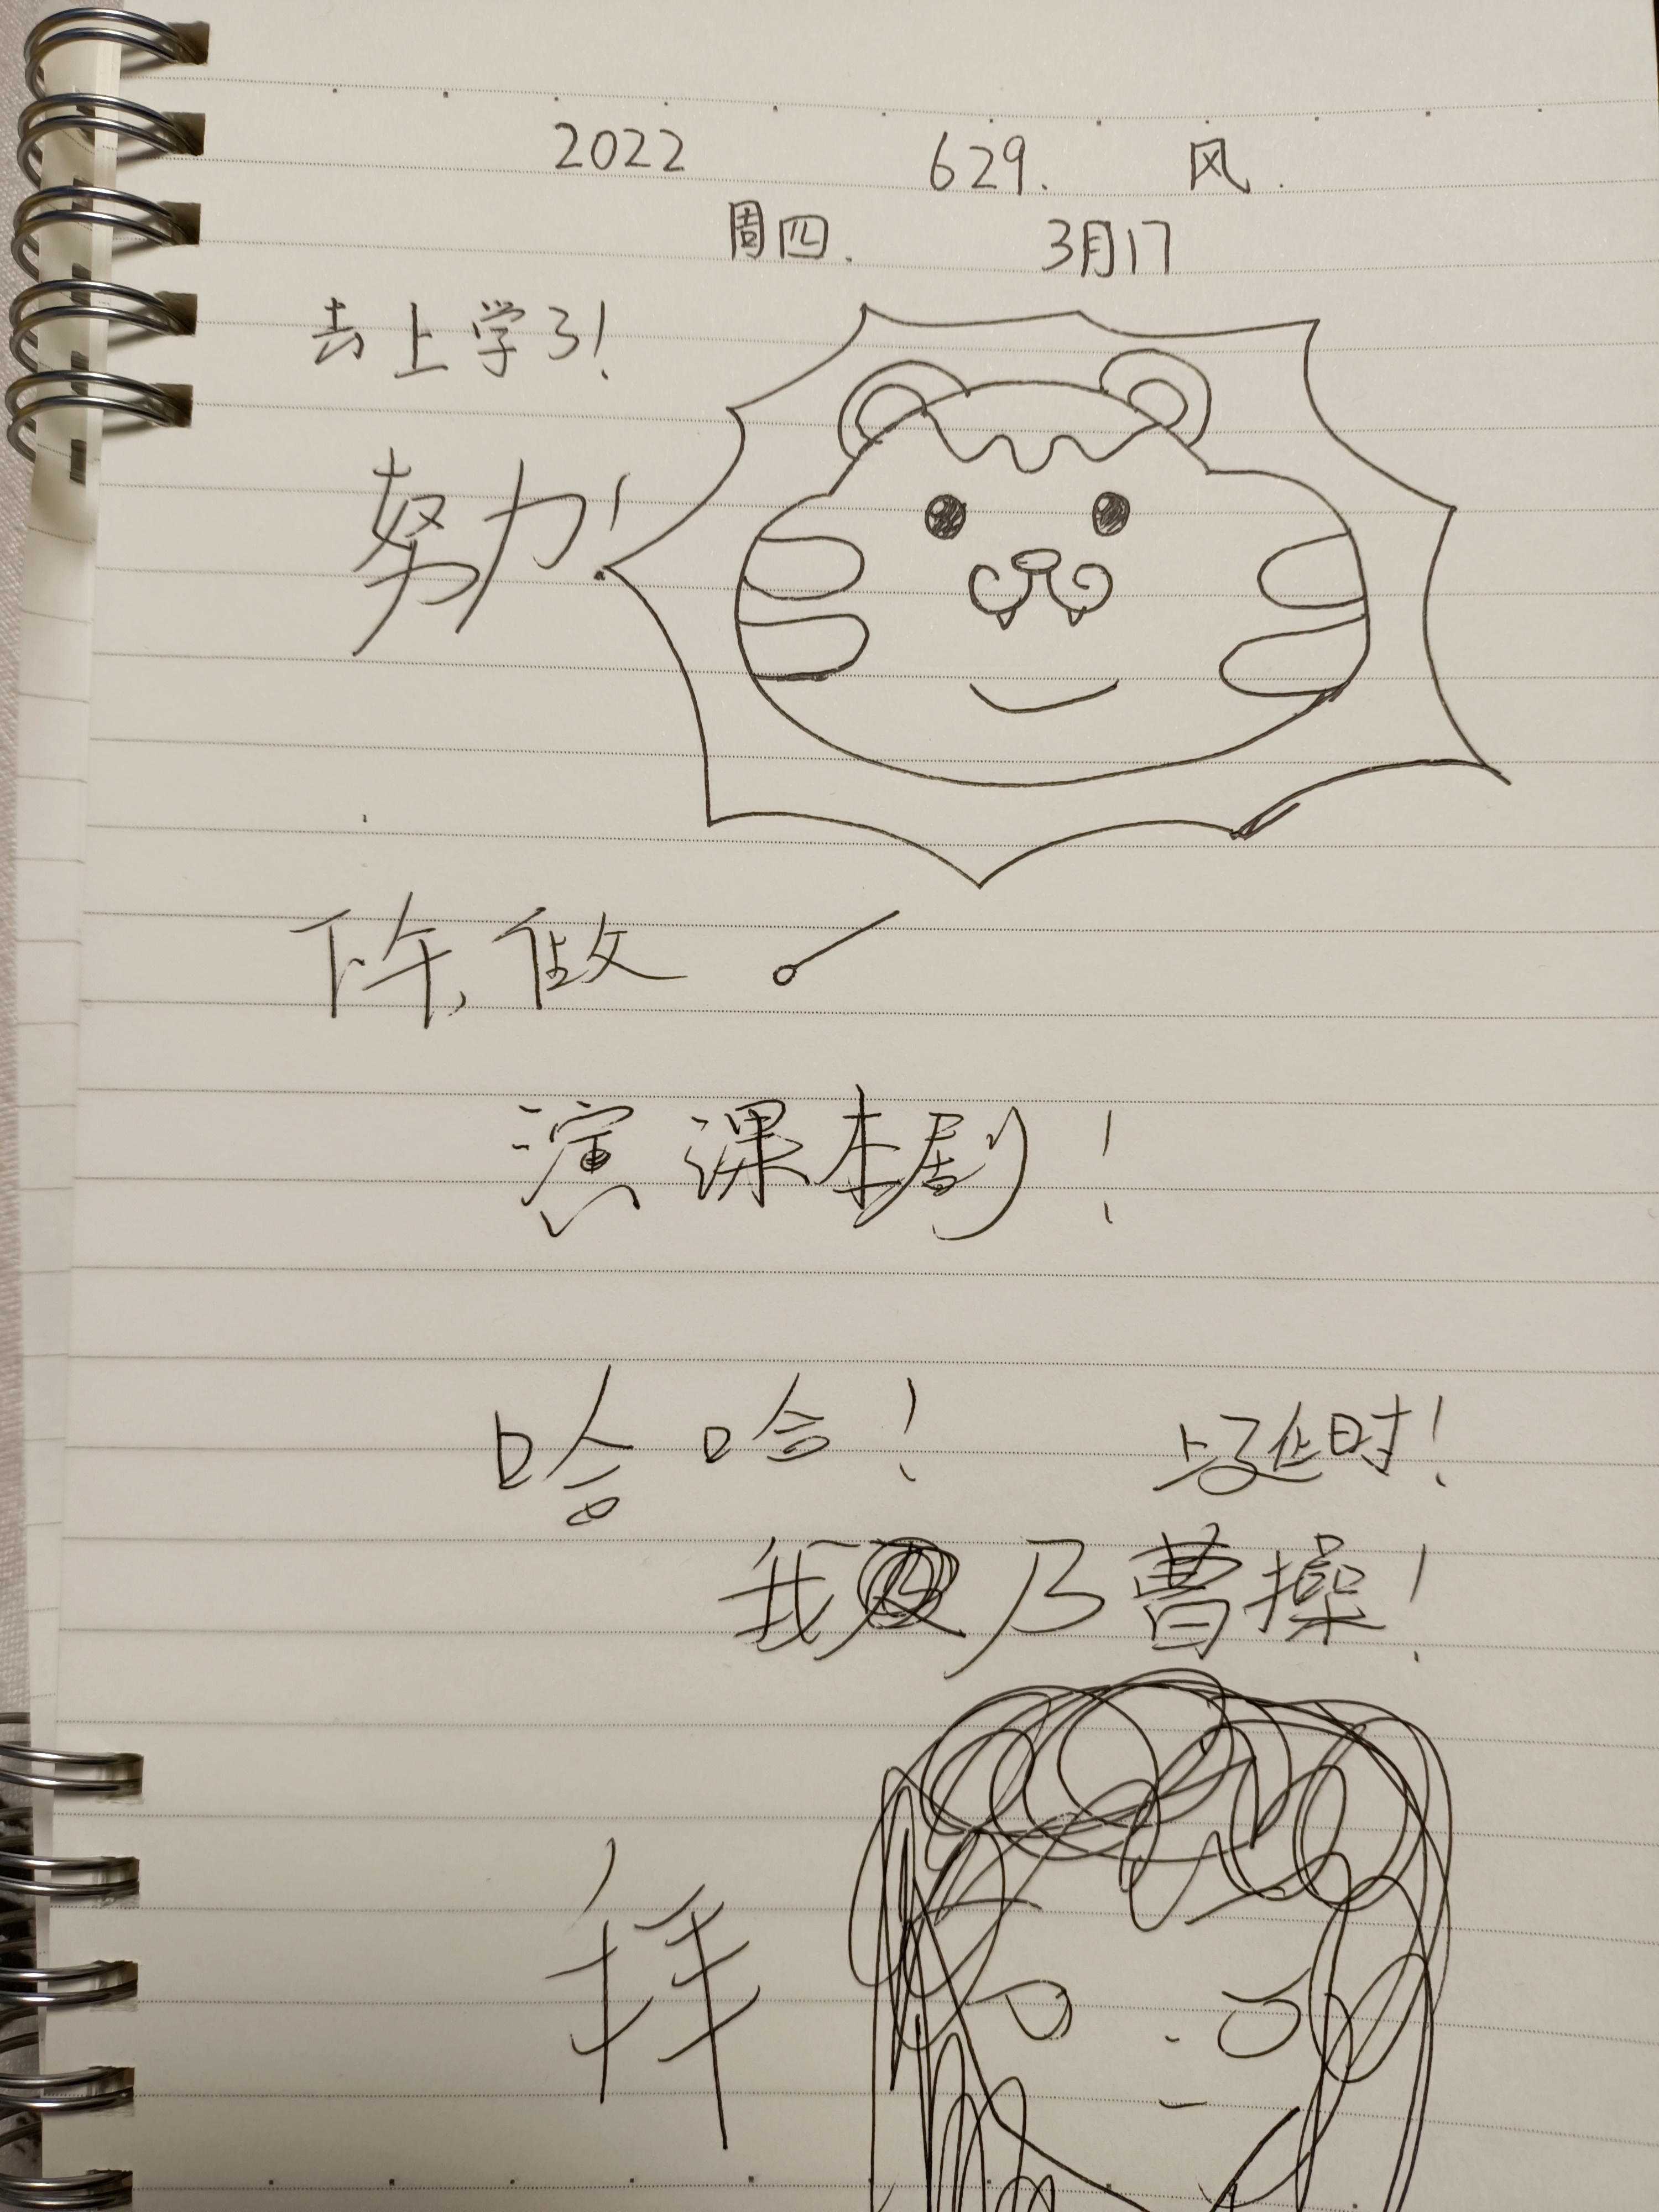 2022 629. 风.
周四. 3月17
去上学了!
努力!
下午,做
演课本剧!
哈哈! 上了延时!
我乃曹操!
拜